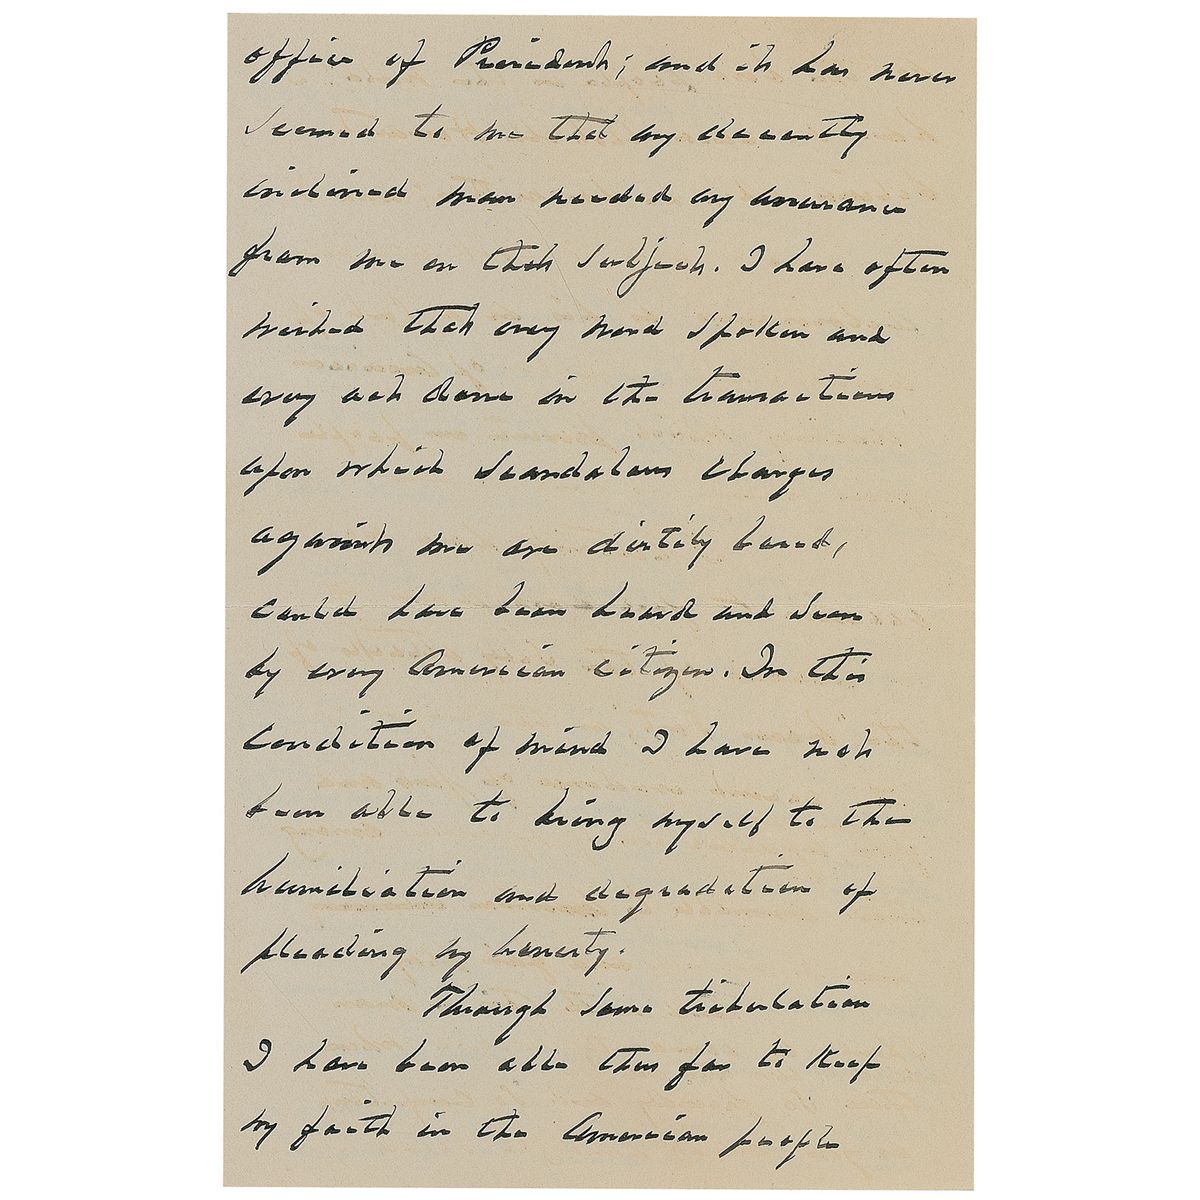 office of President; and it has never
seemed to me that any decently
inclined man needed any assurance
from me on that subject. I have often
wished that every word spoken and
every act done in the transactions
upon which scandalous charges
against me are dirtily based,
could have been heard and seen
by every American citizen. In this
condition of mind I have not
been able to bring myself to the
humiliation and degradation of
pleading my honesty.
Through some tribulation
I have been able thus far to keep
my faith in the American people